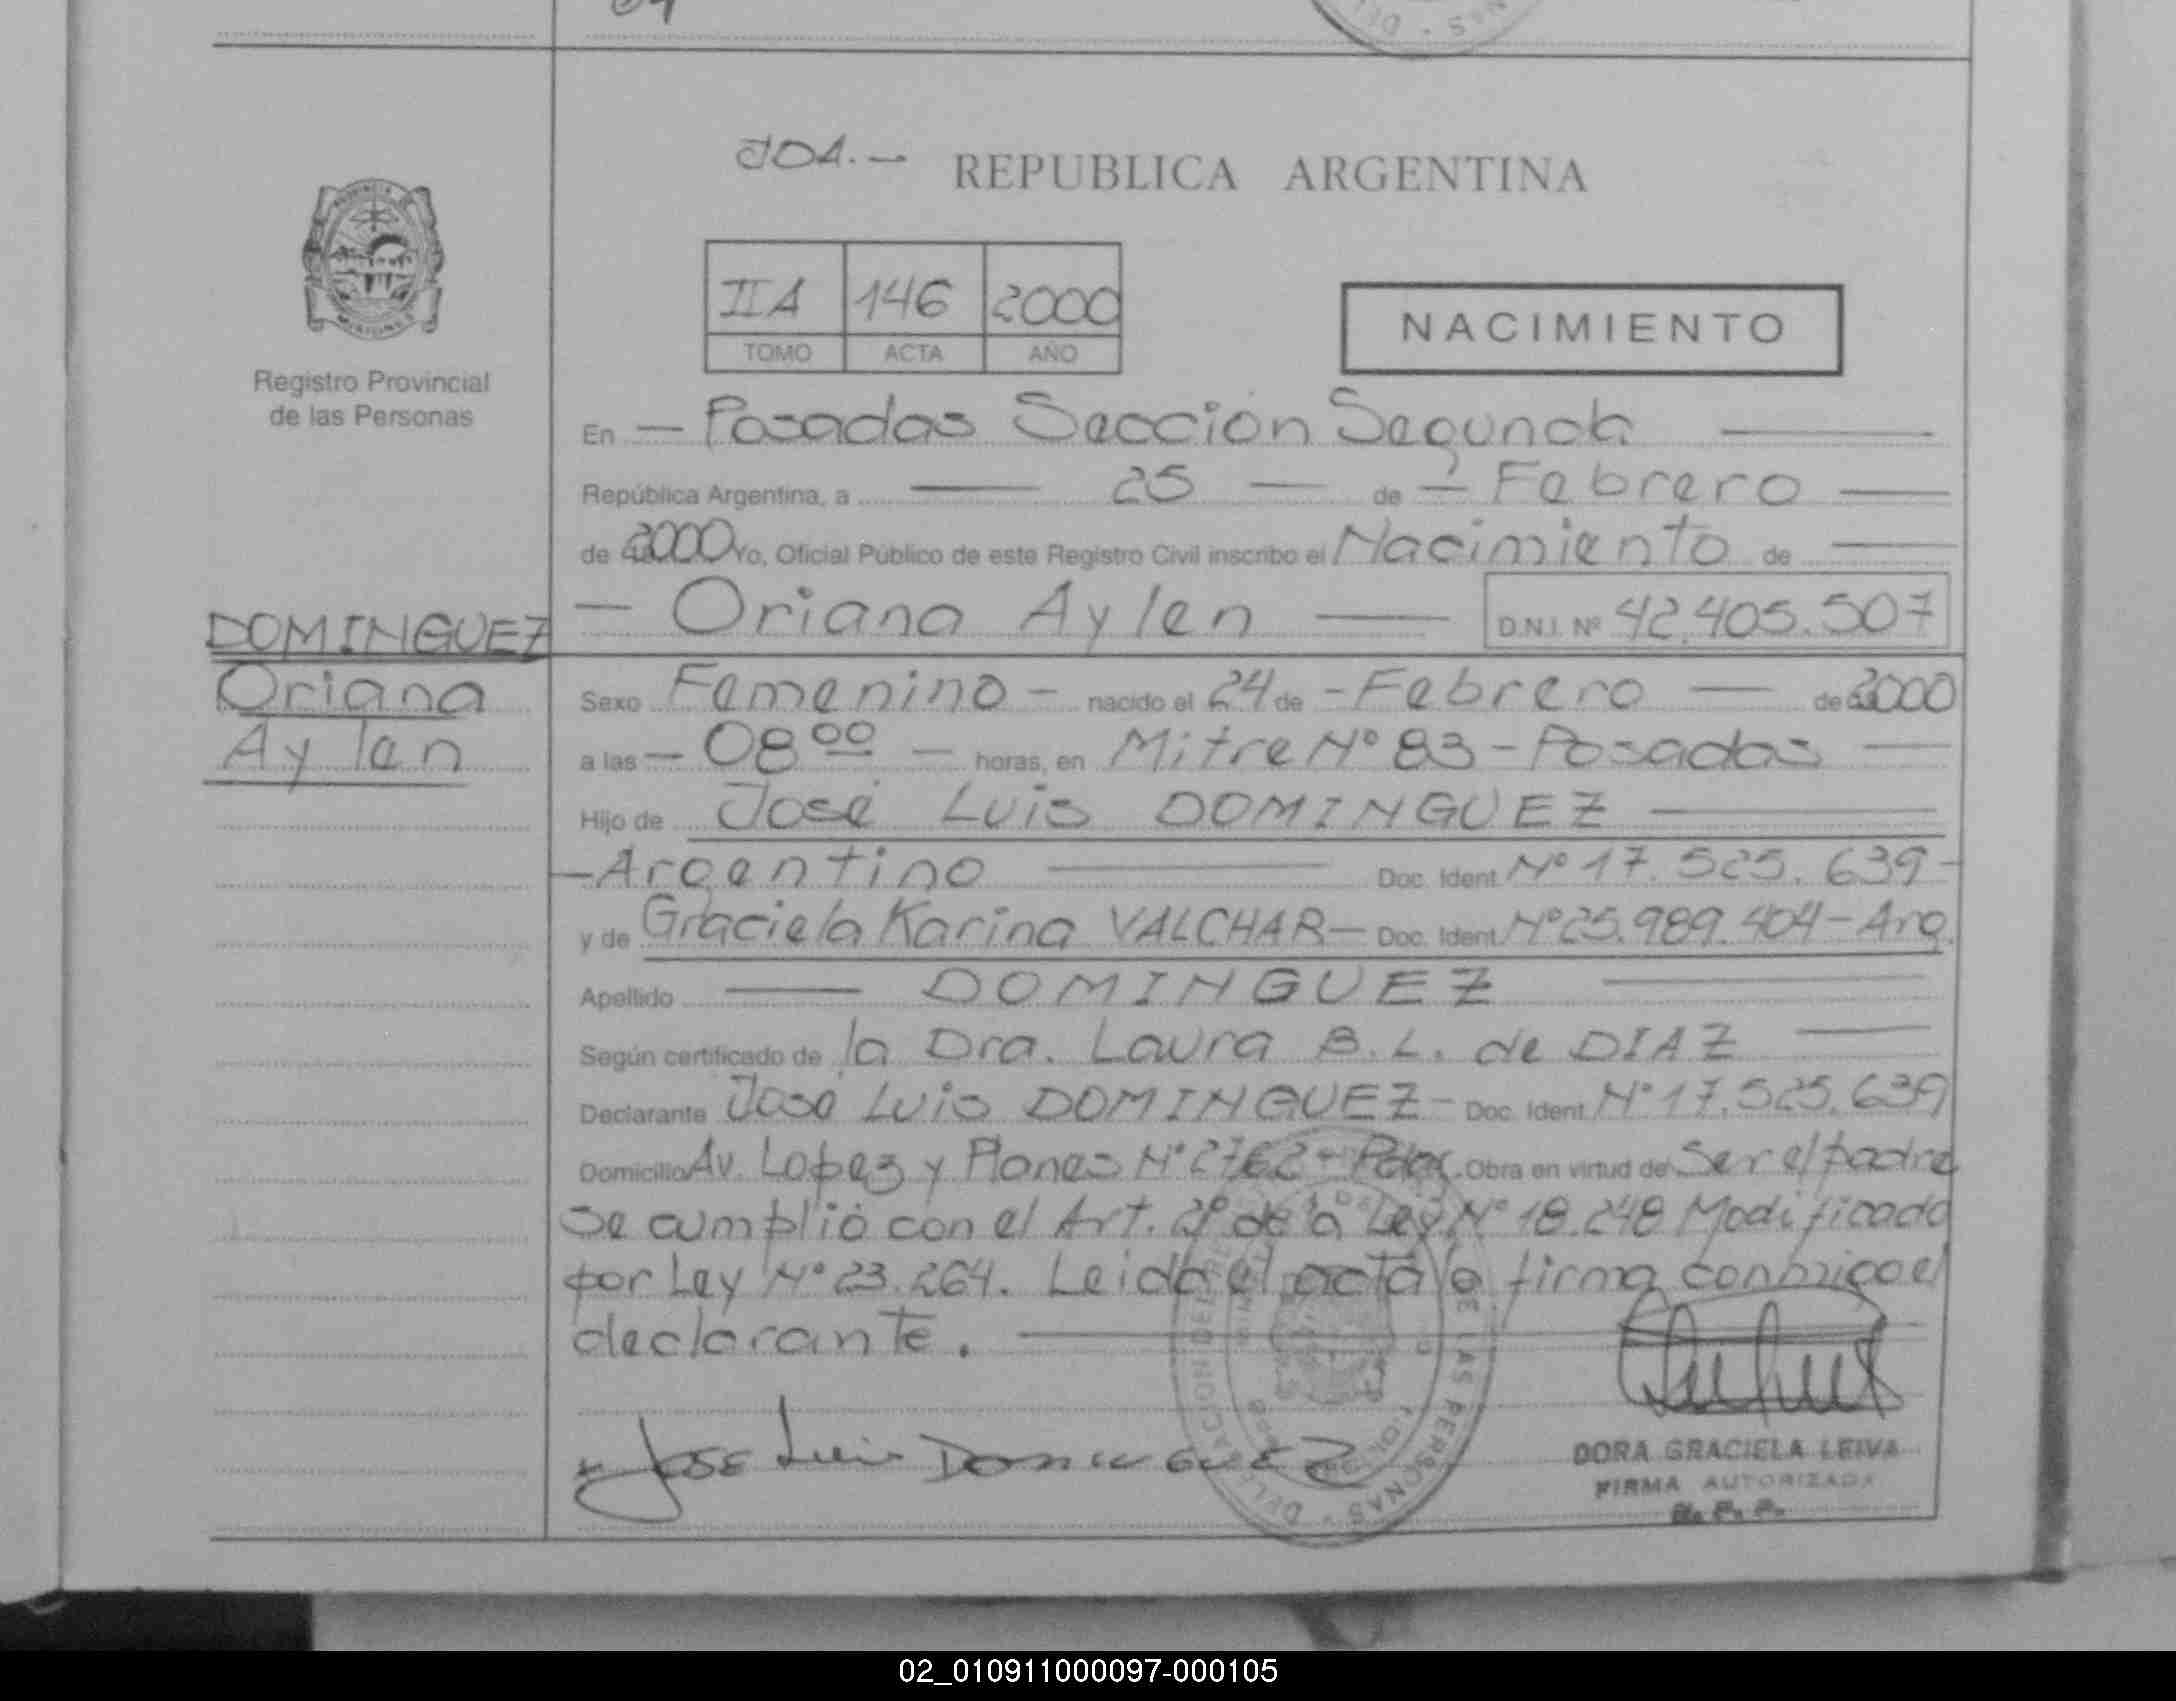 J01.- REPUBLICA ARGENTINA
IIA 146 2000
TOMO ACTA AÑO
NACIMIENTO
Registro Provincial
de las Personas
En — Posadas Sección Segunda —
República Argentina, a — 25 — de — Febrero —
de 2000 Yo, Oficial Público de este Registro Civil inscribo el Nacimiento de —
— Oriana Aylen — D.N.I. Nº 42.405.507
DOMINGUEZ
Oriana
Aylen
Sexo Femenino - nacido el 24 de - Febrero — de 2000
a las — 08 00 — horas, en Mitre Nº 83 - Posadas —
Hijo de José Luis DOMINGUEZ —
— Argentino — Doc. Ident. Nº 17.525.639 -
y de Graciela Karina VALCHAR — Doc. Ident. Nº 25.989.404 - Arg.
Apellido — DOMINGUEZ —
Según certificado de la Dra. Laura B. L. de DIAZ —
Declarante José Luis DOMINGUEZ - Doc. Ident. Nº 17.525.639
Domicilio Av. Lopez y Planes Nº 2762 - Pdas. Obra en virtud de Ser el padre
Se cumplió con el Art. 2º de la Ley Nº 18.248 Modificado
por Ley Nº 23.264. Leida el acta la firma conmigo el
declarante. —
JOSE Luis DOMINGUEZ
DORA GRACIELA LEIVA
FIRMA AUTORIZADA
R. P. P.
02_010911000097-000105